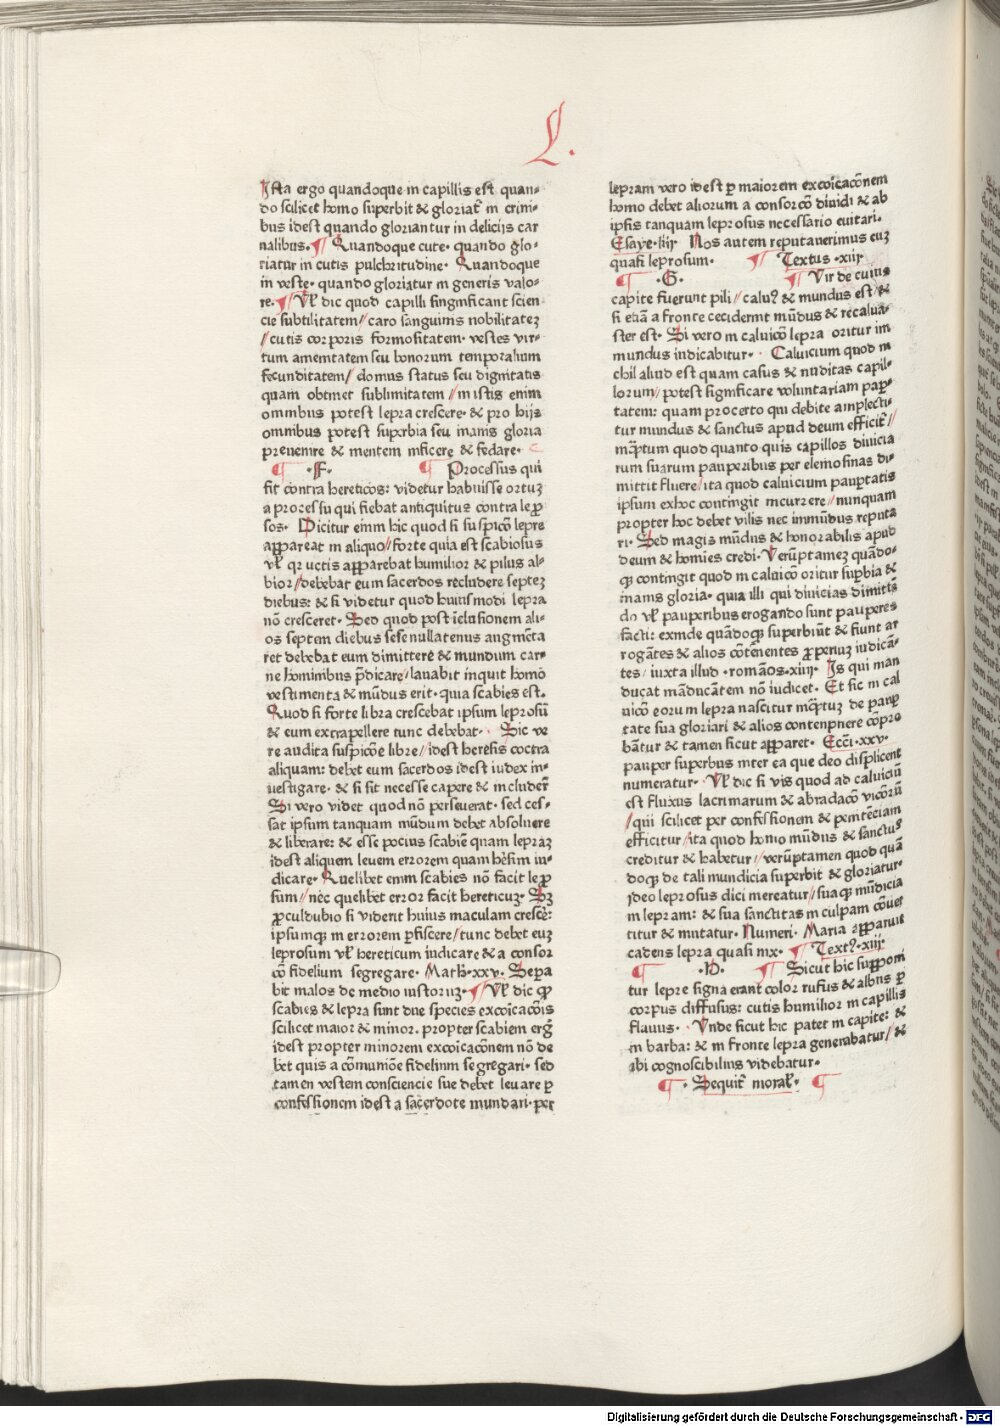 L.
Ista ergo quandoque in capillis est quan-
do scilicet homo superbit & gloriat̄ in crini-
bus idest quando gloriantur in delicijs car
nalibus. ¶ Quandoque cute· quando glo-
riatur in cutis pulchritudine· Quandoque
in veste· quando gloriatur in generis valo-
re. ¶ Vl̛ dic quod capilli singnificant scien
cie subtilitatem/ caro sanguinis nobilitatez
/cutis corporis formositatem· vestes vir-
tutum amenitatem seu bonorum temporalium
fecunditatem/ domus status seu dignitatis
quam obtinet sublimitatem/ in istis enim
omnibus potest lepra crescere· & pro hijs
omnibus potest superbia seu inanis gloria
prevenire & mentem inficere & fedare·
¶ ·F· ¶ Processus qui
fit contra hereticos: videtur habuisse ortuz
a processu qui fiebat antiquitus contra lep̄
sos· Dicitur enim hic quod si suspicō lepre
appareat in aliquo/ forte quia est scabiosus
vl̛ qr̛ cutis apparebat humilior & pilus al-
bior/ debebat eum sacerdos recludere septez
diebus: & si videtur quod huiusmodi lepra
nō cresceret· Sed quod post īclusionem ali-
os septem diebus sese nullatenus augmēta
ret debebat eum dimittere & mundum car-
ne hominibus p̄dicare/ lavabit inquit homō
vestimenta & mūdus erit· quia scabies est.
Quod si forte libra crescebat ipsum leprosū
& eum extrapellere tunc debebat· Sic ve
re audita suspicōe libre/ idest heresis coctra
aliquam: debet eum sacerdos idest iudex in-
vestigare· & si sit necesse capere & includer̄
Si vero videt quod nō perseverat· sed ces-
sat ipsum tanquam mūdum debet absolvere
& liberare: & esse pocius scabiē quam lepraz
idest aliquem levem errorem quam hēsim in-
dicare· Quelibet enim scabies nō facit lep̄
sum/ nec quelibet error facit hereticuz· Sz
proculdubio si viderit huius maculam crescē:
ipsumqz in errorem p̄fiscere/ tunc debet euz
leprosum vl̛ hereticum iudicare & a consor
cō fidelium segregare· Math·xxv· Sepa
bit malos de medio iustoruz· ¶ Vl̛ dic qp̄
scabies & lepra sunt due species excōicacōis
scilicet maior & minor· propter scabiem ergō
idest propter minorem excōicacōnem nō de
bet quis a cōmuniōe fidelium segregari· sed
tamen vestem consciencie sue debet levare p̄
confessionem idest a sacerdote mundari· per
lepram vero idest p̄ maiorem excōicacōnem
homo debet aliorum a consorcō dividi & ab
ipsis tanquam leprosus necessario euitari.
Esaye·liij· Nos autem reputaverimus euz
quasi leprosum· ¶ Textus·xiij·
¶ ·G· ¶ Vir de cuius
capite fluerunt pili/ calvꝰ & mundus est/ &
si eciā a fronte ceciderint mūdus & recalva-
ster est· Si vero in calvicō lepra oritur im
mundus indicabitur· Calvicium quod ni
chil aliud est quam casus & nuditas capil-
lorum/ potest significare voluntariam pap̄-
tatem: quam procerto qui debite amplecti-
tur mundus & sanctus apud deum efficit̄/
inq̄ptum quod quanto quis capillos divicia
rum suarum pauperibus per elemosinas di-
mittit fluere/ ita quod calvicium paup̄tatis
ipsum exhoc contingit incurrere/ nunquam
propter hoc debet vilis nec immūdus reputa
ri· Sed magis mūdus & honorabilis apud
deum & homies credi· Verūptamez quādo-
qz contingit quod in calvicō oritur sup̄bia &
inanis gloria· quia illi qui divicias dimittē
do vl̛ pauperibus erogando sunt pauperes
facti: exinde quādoqz superbiūt & fiunt ar
rogātes & alios cōtēnentes properiuz iudicā-
tes/ iuxta illud·romāos·xiiij· Is qui man
ducat māducātem nō iudicet· Et sic in cal
vicō eorum lepra nascitur inq̄ptuz de paup̄
tate sua gloriari & alios contenpnere cōpro
bātur & tamen sicut apparet· Ecci̅·xxv·
pauper superbus inter ea que deo displicent
numeratur· Vl̛ dic si vis quod ad calviciū
est fluxus lacrimarum & abradacō vicōrū
/qui scilicet per confessionem & penitēciam
efficitur/ ita quod homo mūdus & sanctus
creditur & habetur/ verūptamen quod quā
doqz de tali mundicia superbit & gloriatur·
ideo leprosus dici mereatur/ suaqz mūdicia
in lepram: & sua sanctitas in culpam cōver
titur & mutatur· Numeri· Maria apparuit
cadens lepra quasi nix· ¶ Textꝰ·xiij·
¶ ·H· ¶ Sicut hic supponi
tur lepre signa erant color rufus & albus p̄
corpus diffusus: cutis humilior in capillis
flavus· Vnde sicut hic patet in capite: &
in barba: & in fronte lepra generabatur/ &
ibi cognoscibilius videbatur·
¶ · Sequit̄ moral̛· ¶
Digitalisierung gefördert durch die Deutsche Forschungsgemeinschaft - DFG